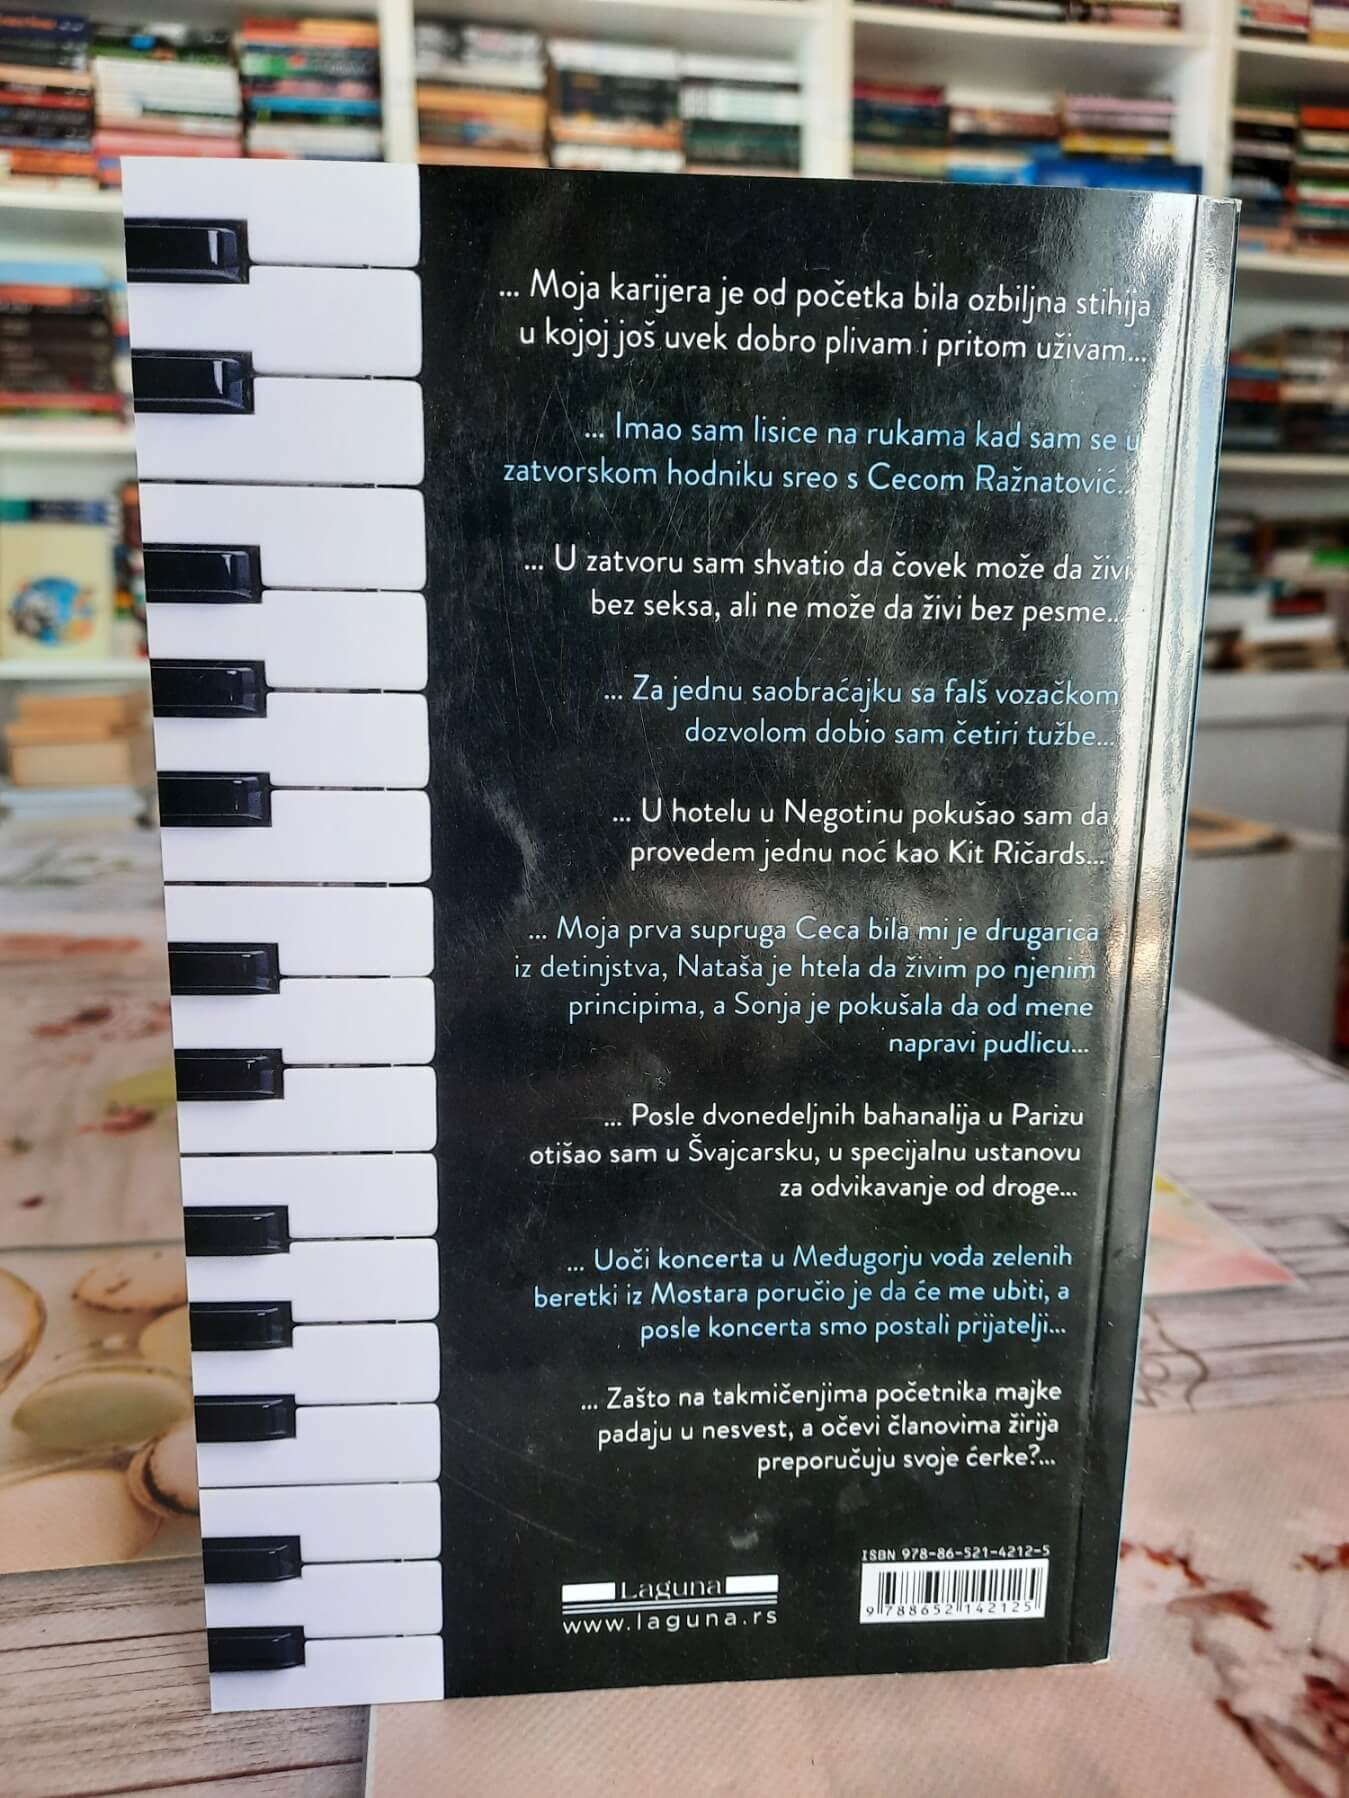 ... Moja karijera je od početka bila ozbiljna stihija
u kojoj još uvek dobro plivam i pritom uživam...
... Imao sam lisice na rukama kad sam se u
zatvorskom hodniku sreo s Cecom Ražnatović...
... U zatvoru sam shvatio da čovek može da živi
bez seksa, ali ne može da živi bez pesme...
... Za jednu saobraćajku sa falš vozačkom
dozvolom dobio sam četiri tužbe...
... U hotelu u Negotinu pokušao sam da
provedem jednu noć kao Kit Ričards...
... Moja prva supruga Ceca bila mi je drugarica
iz detinjstva, Nataša je htela da živim po njenim
principima, a Sonja je pokušala da od mene
napravi pudlicu...
... Posle dvonedeljnih bahanalija u Parizu
otišao sam u Švajcarsku, u specijalnu ustanovu
za odvikavanje od droge...
... Uoči koncerta u Međugorju vođa zelenih
beretki iz Mostara poručio je da će me ubiti, a
posle koncerta smo postali prijatelji...
... Zašto na takmičenjima početnika majke
padaju u nesvest, a očevi članovima žirija
preporučuju svoje ćerke?...
Laguna
www.laguna.rs
ISBN 978-86-521-4212-5
9 788652 142125